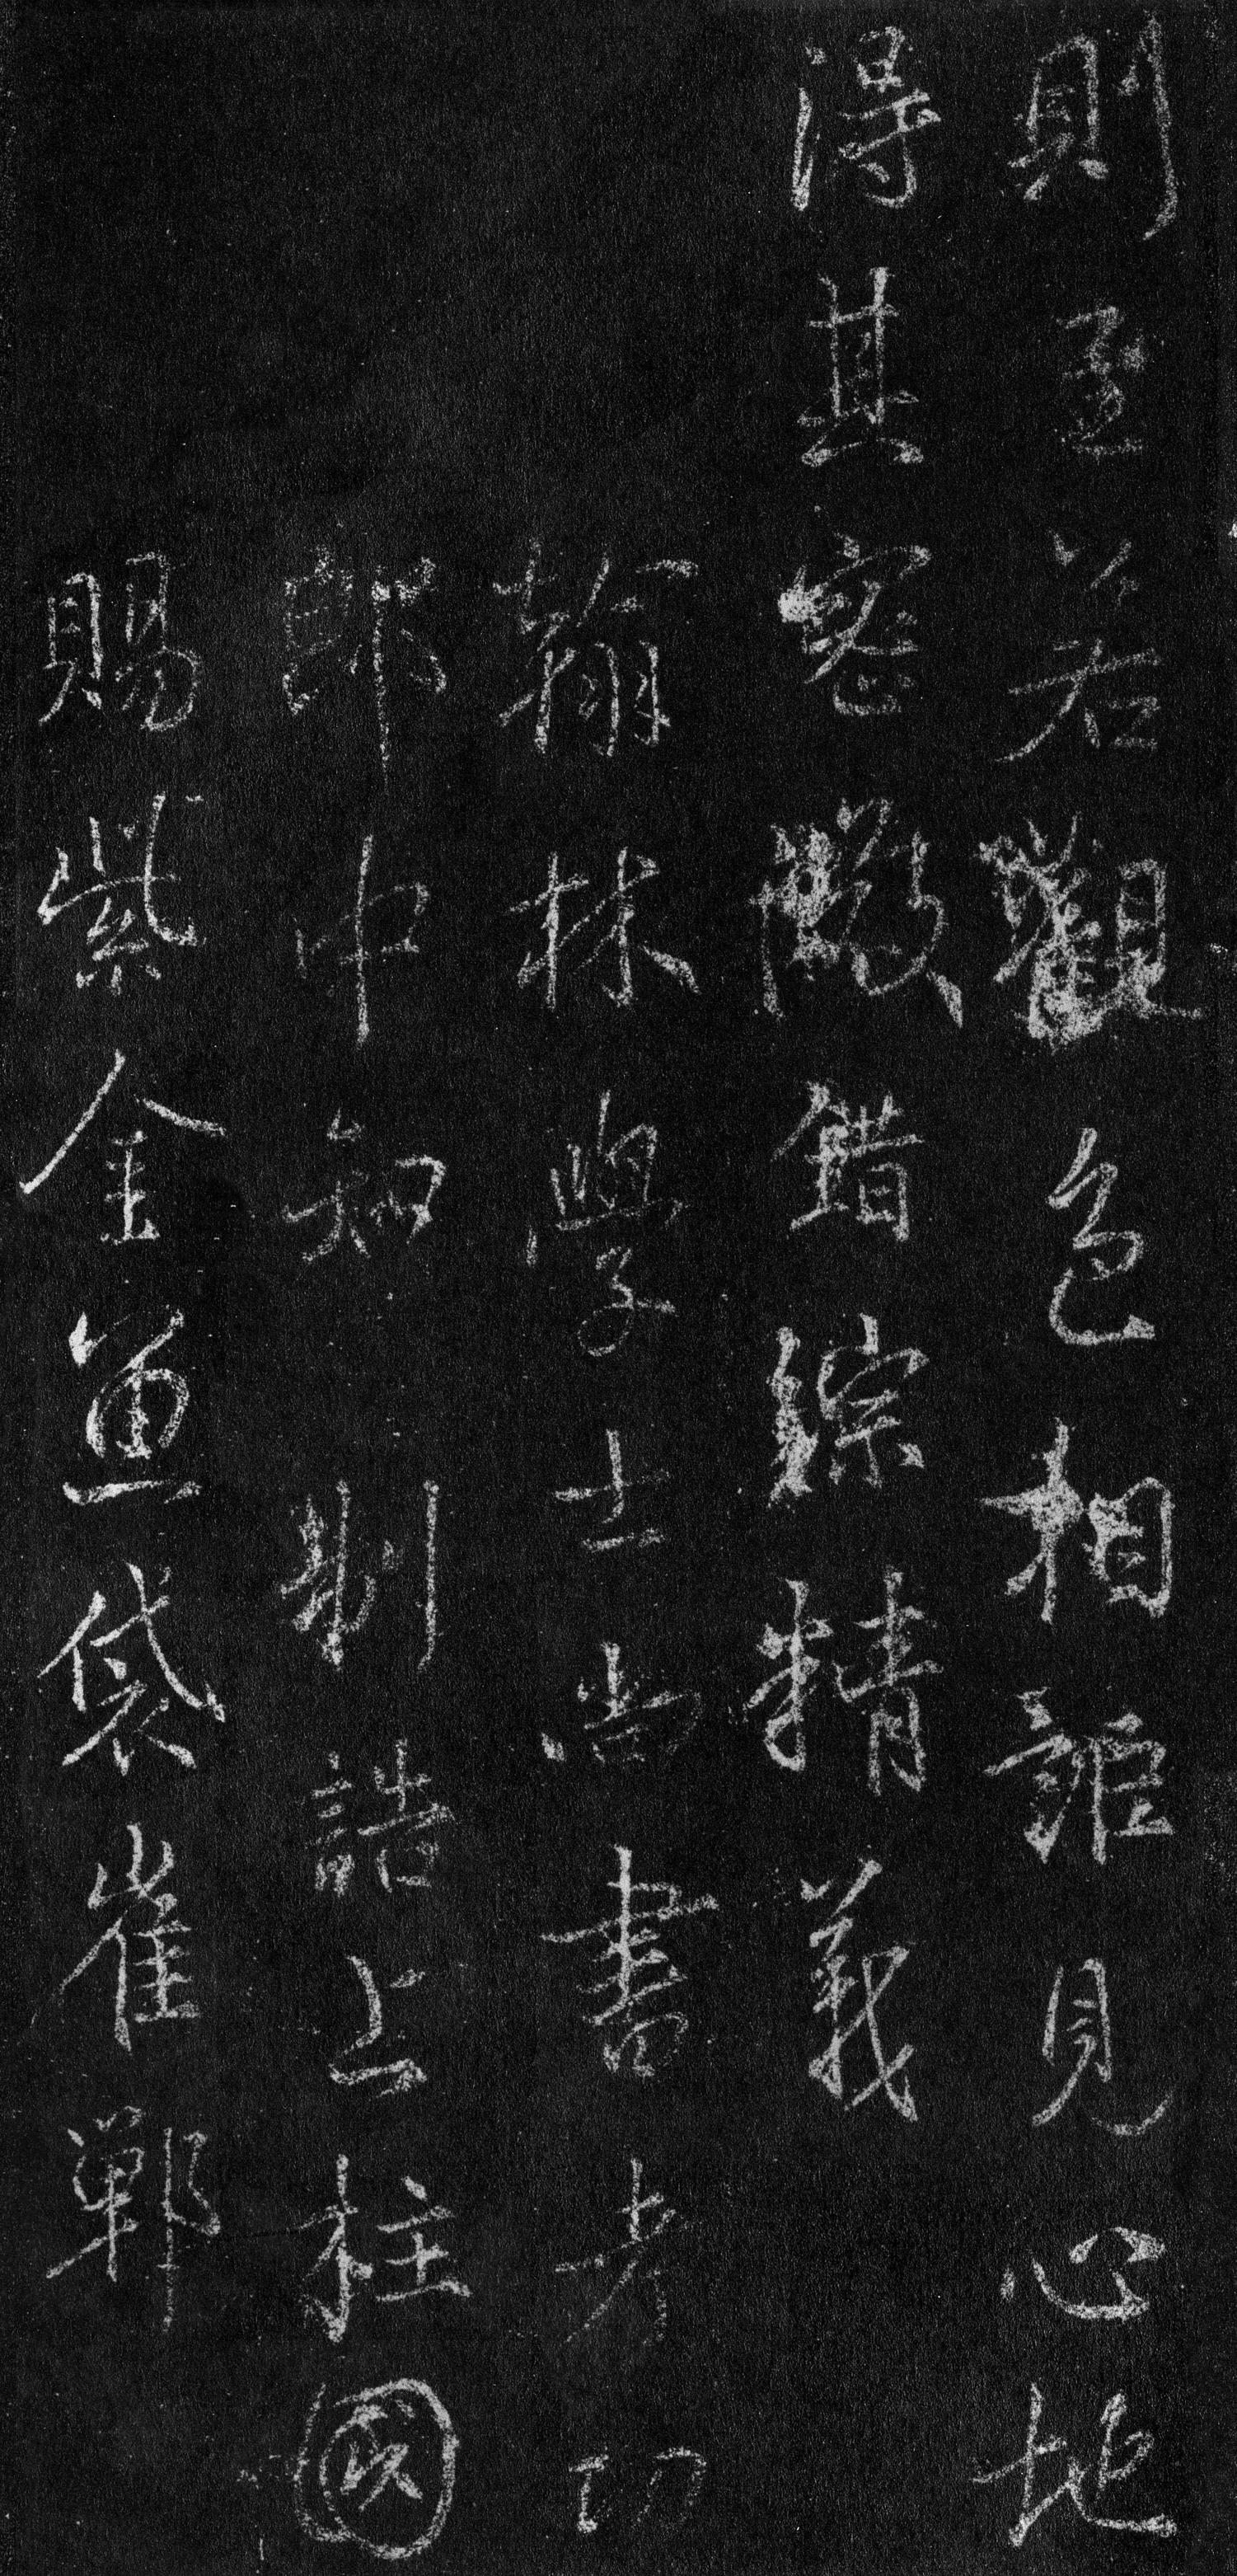 則至若觀色相詎見心地
得其密微錯綜精義
翰林學士尚書考功
郎中知制誥上柱國
賜紫金魚袋崔鄲